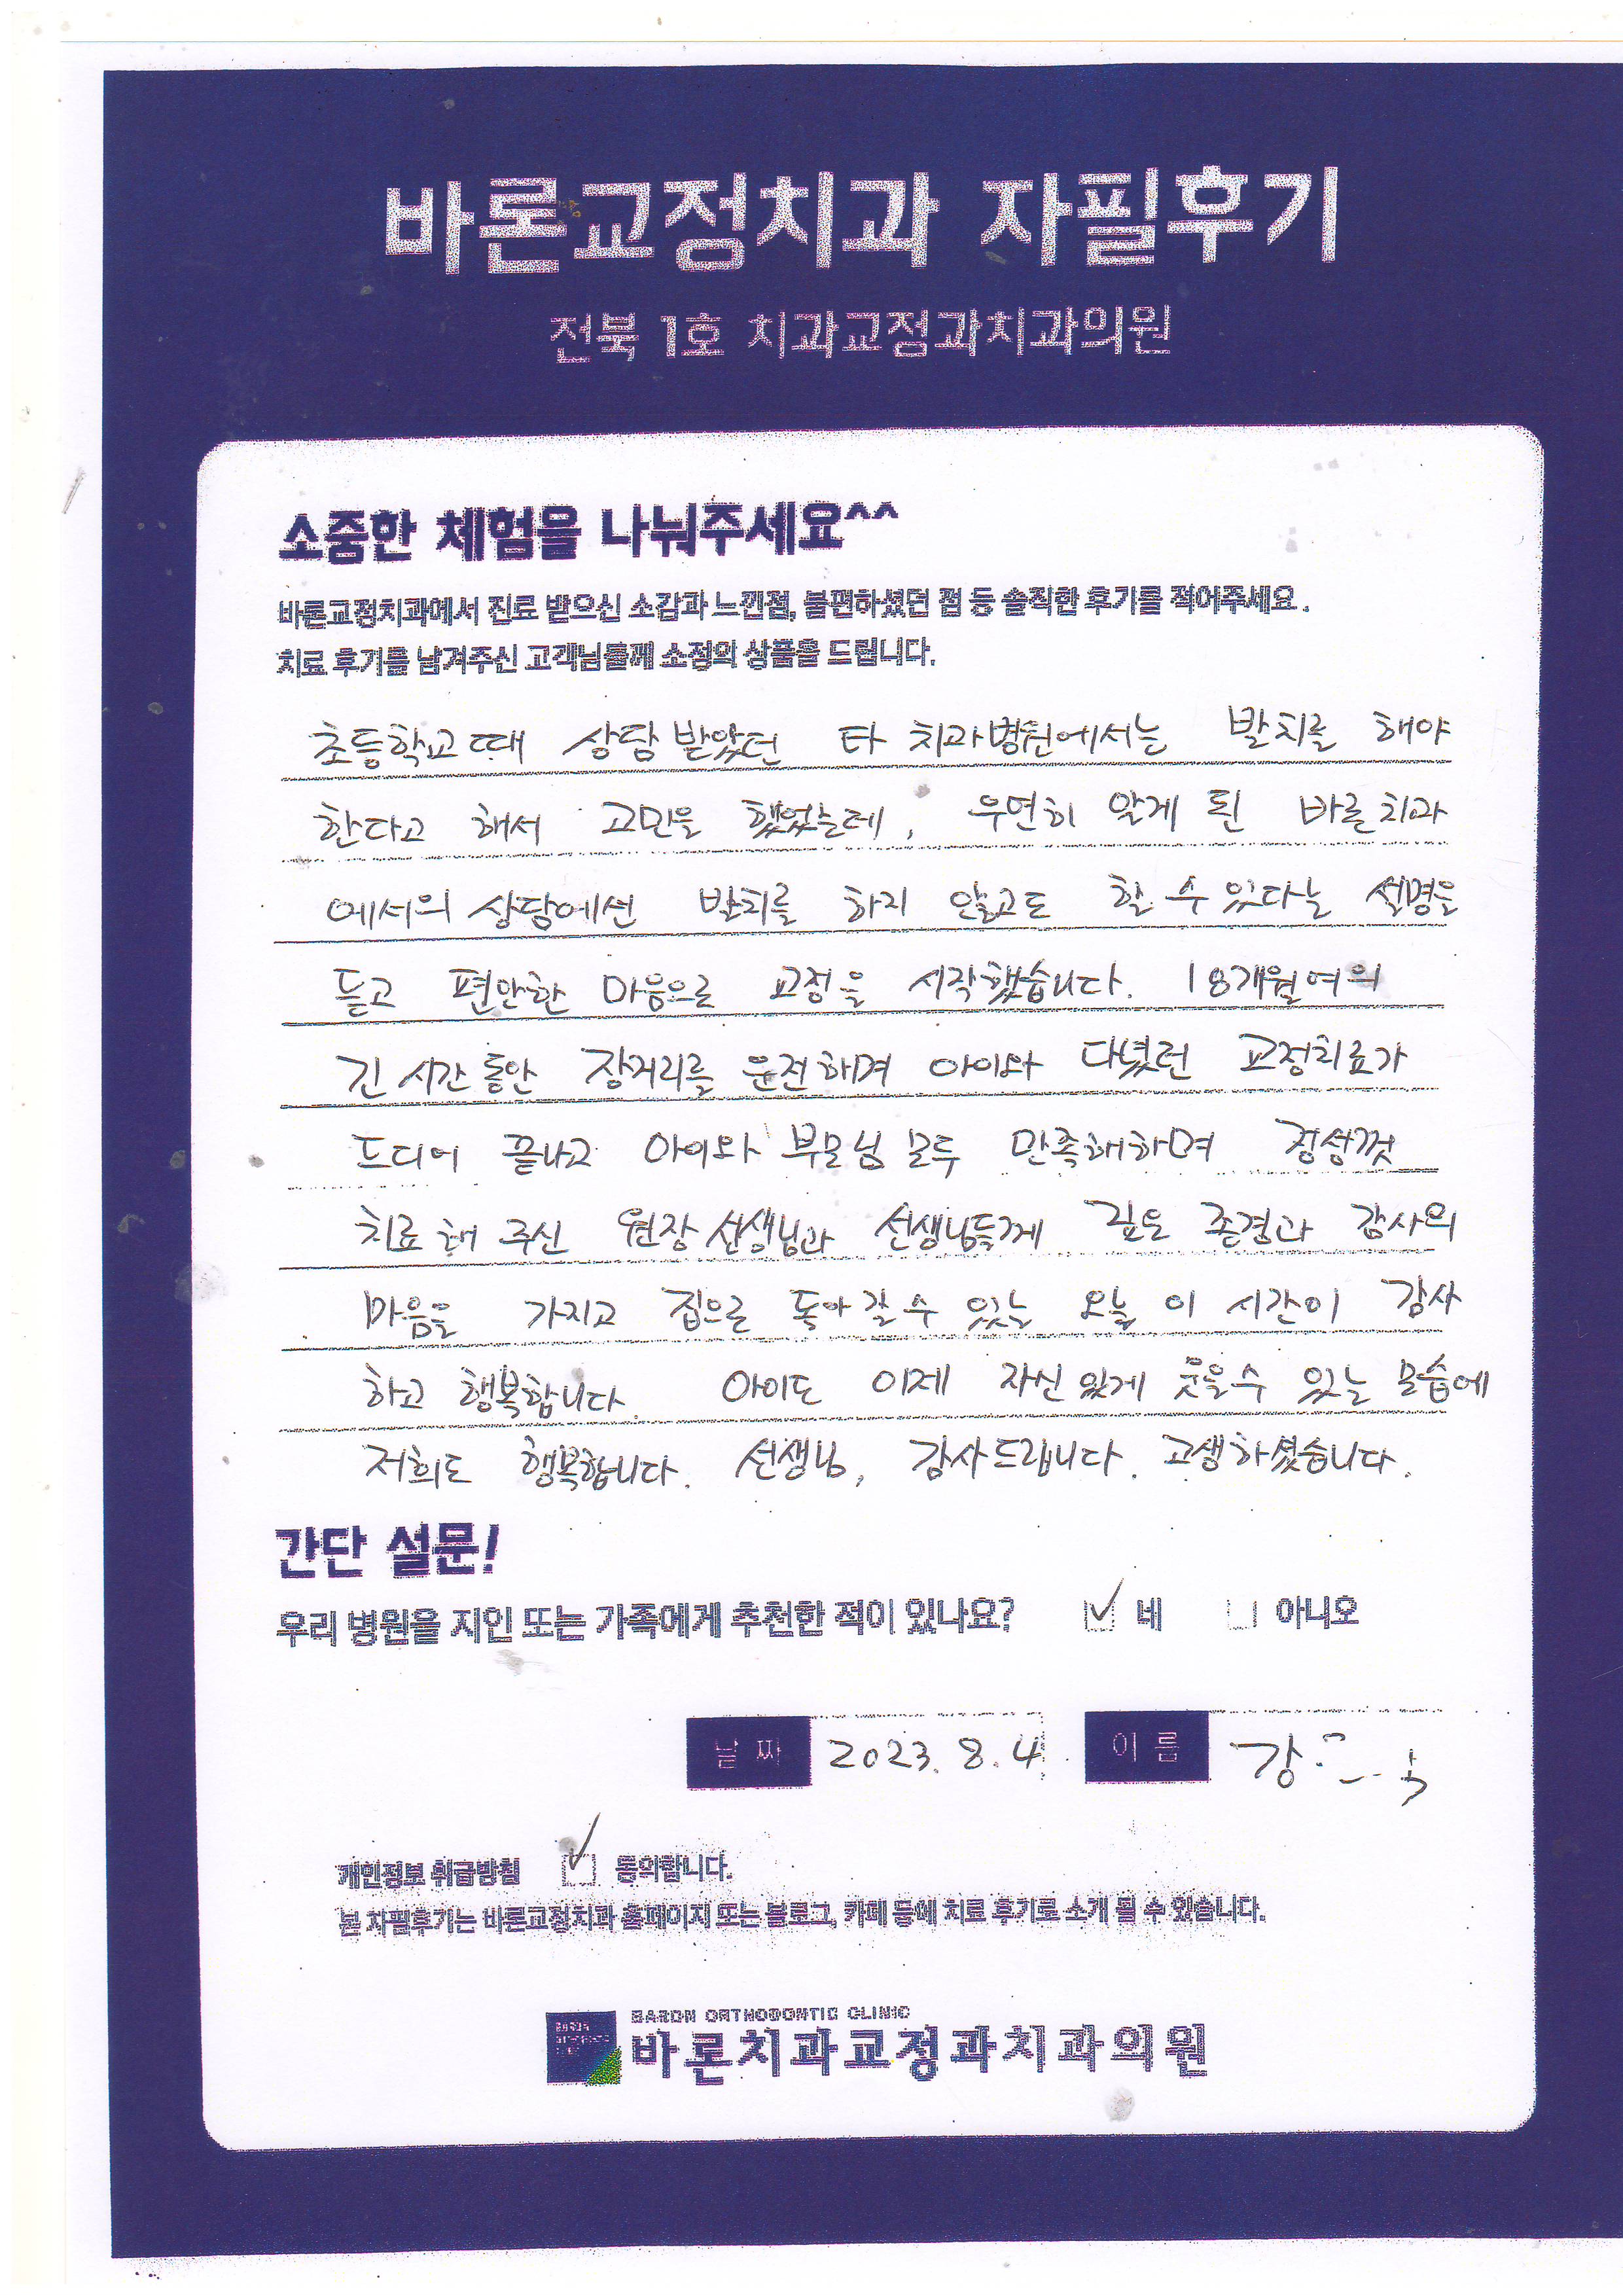 바론교정치과 자필후기
전북 1호 치과교정과치과의원
소중한 체험을 나눠주세요^^
바론교정치과에서 진료 받으신 소감과 느낀점, 불편하셨던 점 등 솔직한 후기를 적어주세요.
치료 후기를 남겨주신 고객님들께 소정의 상품을 드립니다.
초등학교 때 상담 받았던 타 치과병원에서는 발치를 해야
한다고 해서 고민을 했었는데, 우연히 알게 된 바른치과
에서의 상담에선 발치를 하지 않고도 할 수 있다는 설명을
듣고 편안한 마음으로 교정을 시작했습니다. 18개월여의
긴 시간 동안 장거리를 운전하며 아이와 다녔던 교정치료가
드디어 끝나고 아이와 부모님 모두 만족해하며 정성껏
치료해 주신 원장 선생님과 선생님들께 깊은 존경과 감사의
마음을 가지고 집으로 돌아갈 수 있는 오늘 이 시간이 감사
하고 행복합니다. 아이도 이제 자신있게 웃을 수 있는 모습에
저희도 행복합니다. 선생님, 감사드립니다. 고생하셨습니다.
간단 설문!
우리 병원을 지인 또는 가족에게 추천한 적이 있나요? 네 아니오
날짜 2023. 8. 4 이름 강
개인정보 취급방침 동의합니다.
본 자필후기는 바론교정치과 홈페이지 또는 블로그, 카페 등에 치료 후기로 소개 될 수 있습니다.
BARON ORTHODONTIC CLINIC
바론치과교정과치과의원